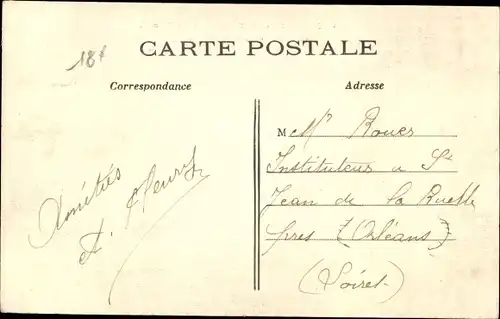 18f
CARTE POSTALE
Correspondance
Adresse
Amitiés
M Mr Rouer
Instituteur a St
Jean de la Ruelle
près (Orléans)
(Loiret)